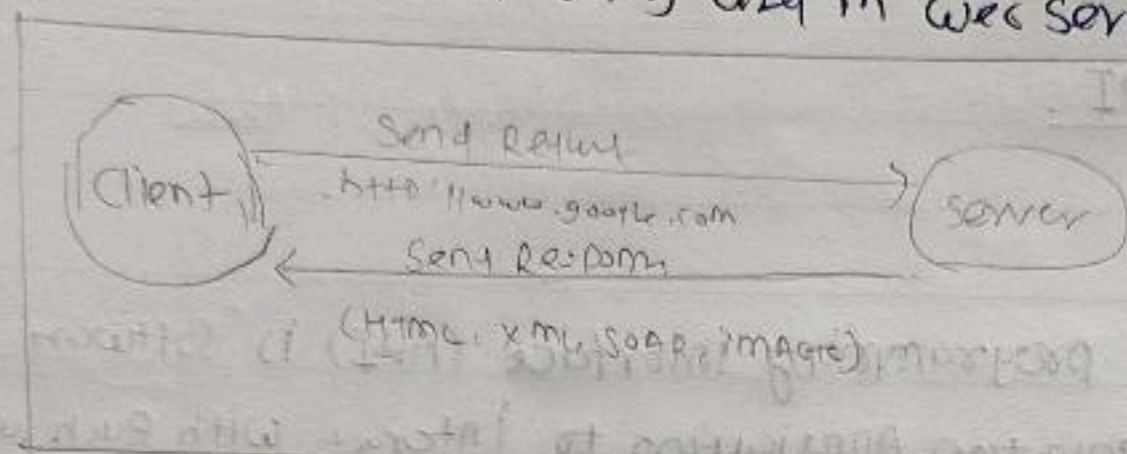 in web Ser
Client
Send Request
http://www.google.com
Send Response
(HTML, XML, SOAP, iMAGE)
Server
I